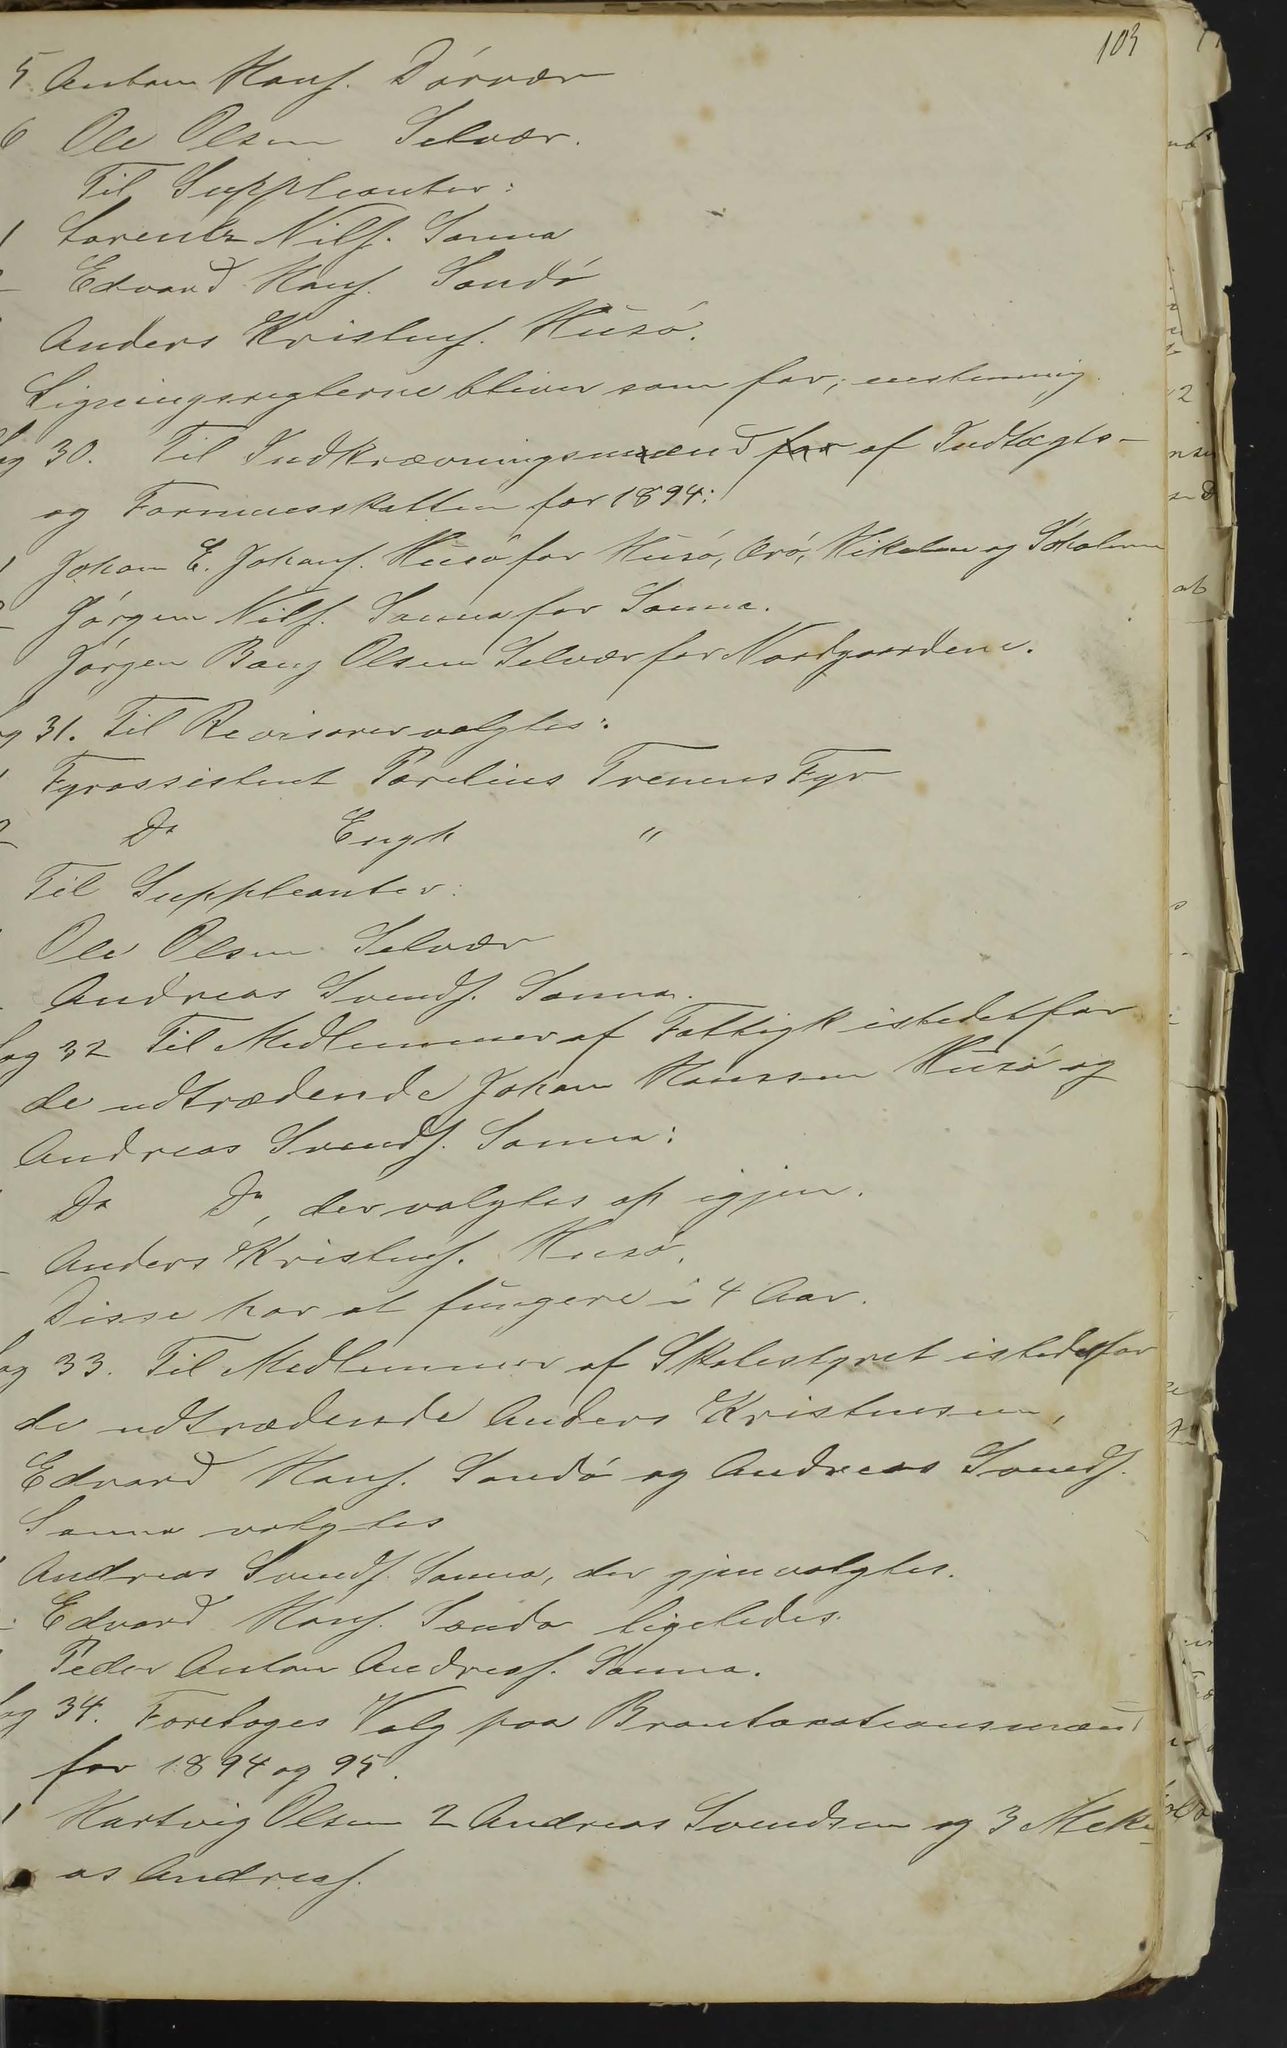 103
5 Anton Hansf. Dørvær
6 Ole Olsen Selvær.
Til Suppleanter:
1 Lorentz Nilsf. Sanna
Edvard Hansf. Sandø
Anders Kristensf. Husø.
Ligningsreglerne bliver som før; enstemmig
Sag 30. Til Indkrævningsmænd for af Indtægts-
og Formuesskatten for 1894:
1 Johan E. Johansf. Husø for Husø, Ærø, Hikalen og Søholmen
Jørgen Nilsf. Sanna for Sanna.
Jørgen Bang Olsen Selvær for Nordgaardene.
Sag 31. Til Revisorer valgtes:
1 Fyrassistent Parelius Trenens Fyr
2 Do Engh "
Til Suppleanter:
Ole Olsen Selvær
Andreas Svendsf. Sanna.
Sag 32 Til Medlemmer af Fattigk istedetfor
de udtrædende Johan Hanssen Husø og
Andreas Svendsf. Sanna:
Do Do, der valgtes op igjen.
Anders Kristensf. Husø.
Disse har at fungere i 4 Aar.
Sag 33. Til Medlemmer af Skolestyret istedetfor
de udtrædende Anders Kristensen,
Edvard Hansf. Sandø og Andreas Svendsf.
Sanna valgtes
Andreas Svendsf. Sanna, der gjenvalgtes.
Edvard Hansf. Sandø ligeledes.
Peder Anton Andreasf. Sanna.
Sag 34. Foretoges Valg paa Brantaxationsmænd
for 1894 og 95.
1 Hartvig Olsen 2 Andreas Svendsen og 3 Meki-
as Andreasf.